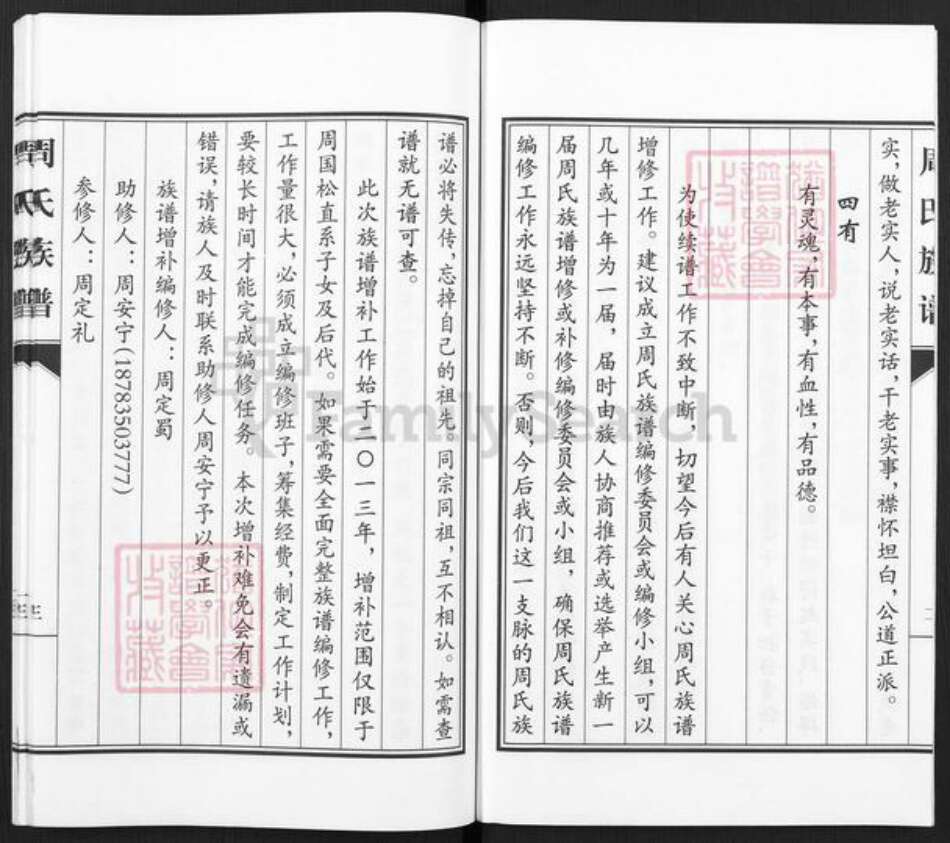 周氏族谱
实,做老实人,说老实话,干老实事,襟怀坦白,公道正派。
四有
有灵魂,有本事,有血性,有品德。
为使续谱工作不致中断,切望今后有人关心周氏族谱
增修工作。建议成立周氏族谱编修委员会或编修小组,可以
几年或十年为一届,届时由族人协商推荐或选举产生新一
届周氏族谱增修或补修编修委员会或小组,确保周氏族谱
编修工作永远坚持不断。否则,今后我们这一支脉的周氏族
谱必将失传,忘掉自己的祖先。同宗同祖,互不相认。如需查
谱就无谱可查。
此次族谱增补工作始于二〇一三年,增补范围仅限于
周国松直系子女及后代。如果需要全面完整族谱编修工作,
工作量很大,必须成立编修班子,筹集经费,制定工作计划,
要较长时间才能完成编修任务。本次增补难免会有遗漏或
错误,请族人及时联系助修人周安宁予以更正。
族谱增补编修人:周定蜀
助修人:周安宁(18783503777)
参修人:周定礼
周氏族谱
FamilySearch